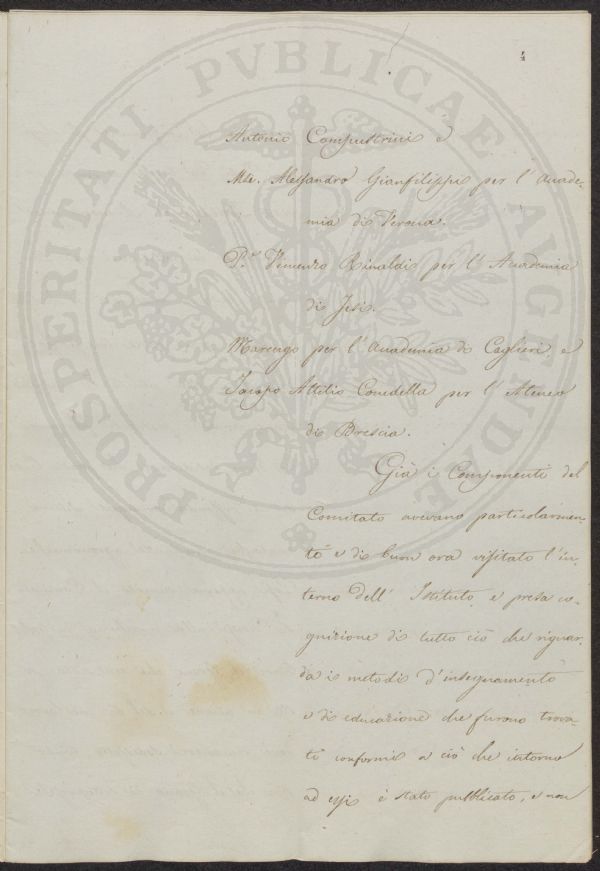 4
Antonio Campostrini e
Mse. Alessandro Gianfilippi per l' Acade-
mia di Verona.
P.e Vincenzo Rinaldi per l' Accademia
di Jesi.
Marengo per l' Academia di Caglieri, e
Jacopo Attilio Cenedella per l' Ateneo
di Brescia.
Già i Componenti del
Comitato avevano particolarmen-
te e di buon ora visitato l' in-
terno dell' Istituto, e presa co-
gnizione di tutto ciò che riguar-
da i metodi d' insegnamento
e di educazione che furono trova-
ti conformi a ciò che intorno
ad essi è stato pubblicato, e non
PROSPERITATI PVBLICAE AVGENDAE